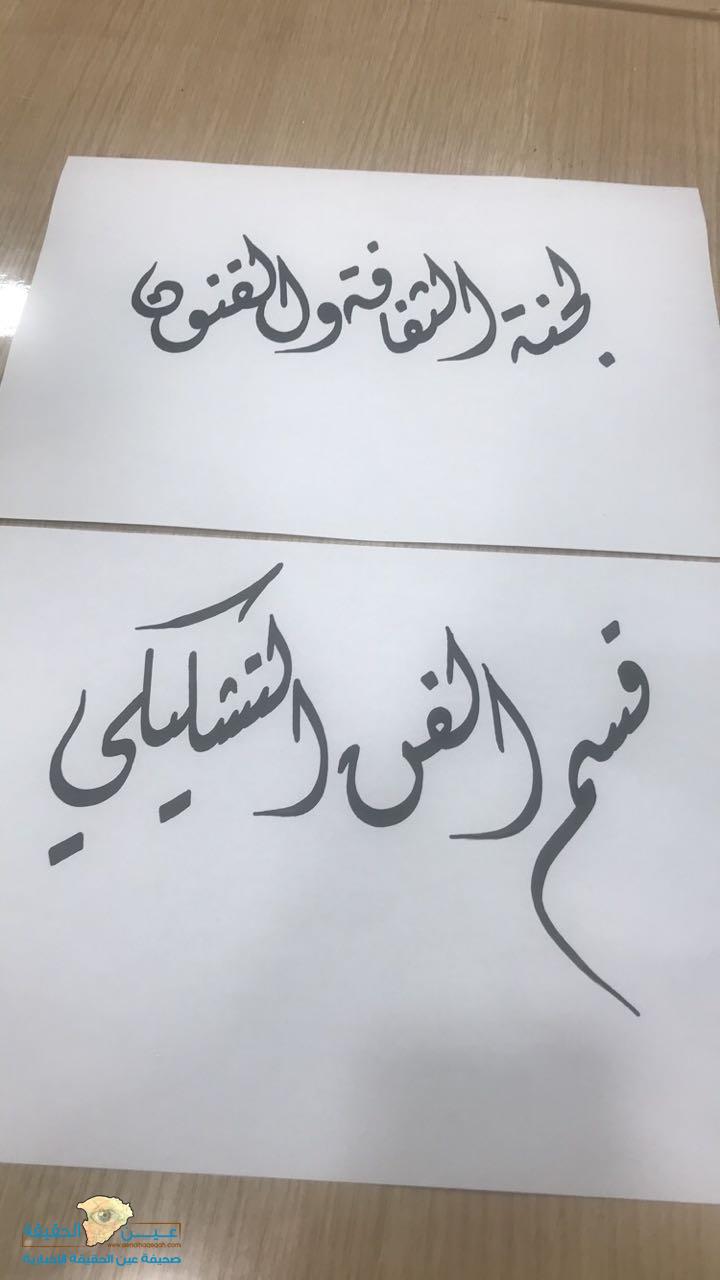 لجنة الثقافة والفنون
قسم الفن التشكيلي
عيـن الحقيقة
www.aenalhaqeqah.com
صحيفة عين الحقيقة الإخبارية